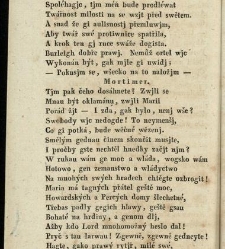 Spoléhagje, tjm mén bude prodléwat
Twárnost milosti na se wzjt před swětem.
A snad že gi aulisnostj přemluwjm,
Aby twář swé protiwnice spatřila,
A krok ten gj ruce swáže dogista.
Burleigh dobře prawj. Nemůž ortel wjc
Wykonán býti, gak mile gi uwidj;
— Pokusjm se, wšecko na to naložjm —
Mortimer.
Tjm pak čeho dosáhnete? Zwjj se
Maria
— I zda, gak bylo, nenj wše?
Swobody wjc nedogde! To neymenj,
Co gj potká, bude wěčné wězenj.
Smělým gednau činem skončit musjte,
I pročby gste nechtěl hnedky zčjt njm?
W rukau wám ge moc a wláda, wogsko wám
Hotowo, gen zemanstwo a wládyctwo
Na mnohých swých hradech chtěgte ozbrogit!
Maria má tagných přátel geště moc,
Howardských a Percyů domy šlechetné,
Třebas podly gegich hlawy, geště gsau
Bohaté na hrdiny, a genom dlj,
Ažby kdo Lord mnohomocný heslo dal!
Pryč s tau larwau! Zgewně, zgewně gednegte!
Hagte, gako prawý rytjř, milé swé,